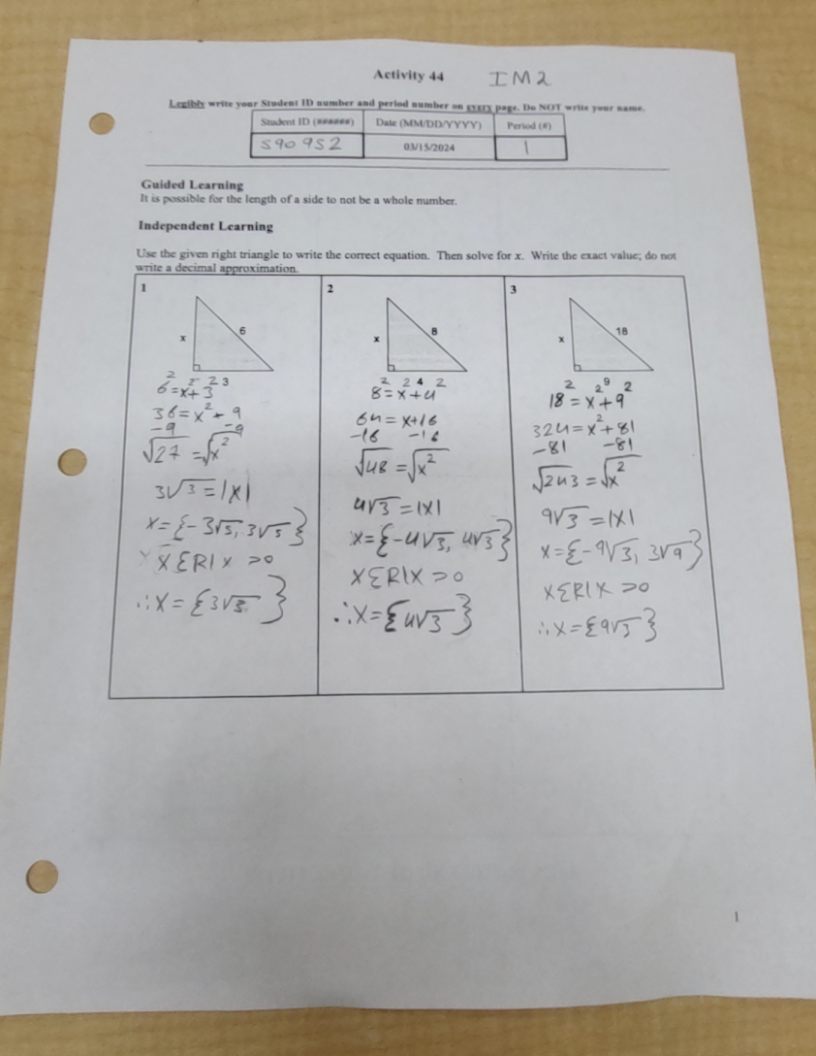 Activity 44 IM2
Legibly write your Student ID number and period number on every page. Do NOT write your name.
Student ID (######) Date (MM/DD/YYYY) Period (#)
590952 03/15/2024 1
Guided Learning
It is possible for the length of a side to not be a whole number.
Independent Learning
Use the given right triangle to write the correct equation. Then solve for x. Write the exact value; do not
write a decimal approximation.
1
x 6
6² = x² + 3²
36 = x² + 9
-9 -9
√27 = √x²
3√3 = |x|
x = {-3√3, 3√3}
x ∈ R | x > 0
∴ x = {3√3}
2
x 8
8² = x² + 4²
64 = x + 16
-16 -16
√48 = √x²
4√3 = |x|
x = {-4√3, 4√3}
x ∈ R | x > 0
∴ x = {4√3}
3
x 18
18² = x² + 9²
324 = x² + 81
-81 -81
√243 = √x²
9√3 = |x|
x = {-9√3, 3√9}
x ∈ R | x > 0
∴ x = {9√3}
1